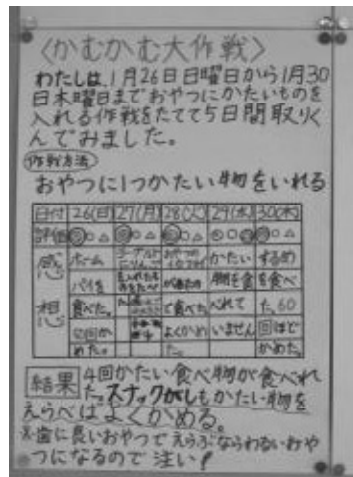 〈かむかむ大作戦〉
わたしは、1月26日日曜日から1月30
日木曜日までおやつにかたいものを
入れる作戦をたてて5日間取りく
んでみました。
作戦方法
おやつに1つかたい物をいれる
日付 26(日) 27(月) 28(火) 29(水) 30(木)
評価 ◎○△ ◎○△ ◎○△ ◎○◎ ◎○△
感想
ホーム
パイを
食べた。
回か
めた。
で食べた。
よくかめ
た。
かたい
物を食
べれて
いません
するめ
を食べ
た。60
回ほど
かめた。
結果 4回かたい食べ物が食べれ
た。スナックがしもかたい物を
えらべばよくかめる。
※歯に長いおやつでえらぶならわるいおや
つになるので注い!